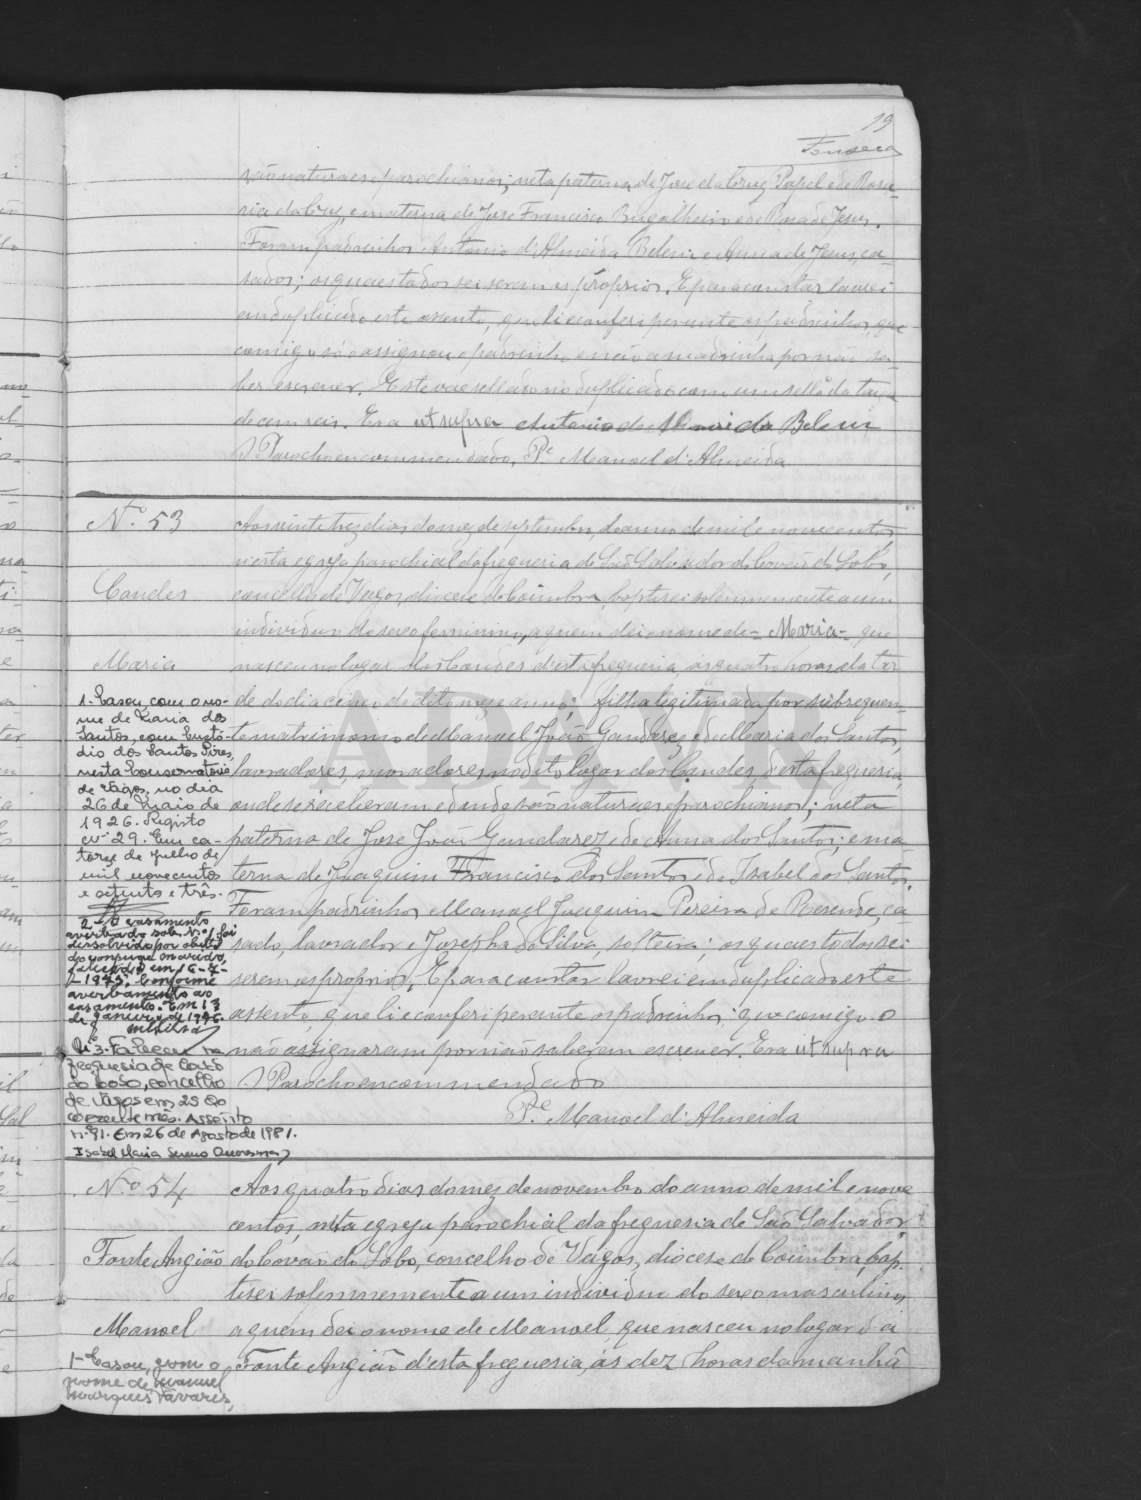 19
Fonseca
são naturaes e parochianos; neta paterna de Jose da Cruz Papel e de Rosa-
ria da Cruz, e materna de Jose Francisco Bugalheiro e de Rosa de Jesus.
Foram padrinhos Antonio d'Almeida Belem e Anna de Jesus, ca-
sados; os quaes todos sei serem os proprios. E para constar lavrei
em duplicado este assento, que li e conferi perante os padrinhos, que
comigo só o assignou o padrinho e não a madrinha por não sa-
ber escrever. Este vae sellado no duplicado com um sello da taxa
de cem reis. Era ut supra Antonio de Almeida Belem
O Parocho encommendado, Pe. Manoel d'Almeida
N.º 53
Candes
Maria
Aos vinte e tres dias do mez de septembro, do anno de mil e novecentos
n'esta egreja parochial da freguesia de São Salvador do Covão do Lobo,
concelho de Vagos, diocese de Coimbra, baptisei solemnemente a um
individuo do sexo feminino, a quem dei o nome de - Maria - que
nasceu no logar dos Candes d'esta freguesia, ás quatro horas da tar
de do dia cinco de dito mez e anno; filha legitimada por subsequen-
te matrimonio de Manuel João Gandarez e de Maria dos Santos,
lavradores, moradores no dito logar dos Candes, d'esta freguesia,
onde se receberam e d'onde são naturaes e parochianos; neta
paterna de Jose João Gandarez e de Anna dos Santos; e ma-
terna de Joaquim Francisco dos Santos e de Isabel dos Santos.
Foram padrinhos Manoel Joaquim Pereira de Resende, ca
sado, lavrador e Josepha da Silva, solteira; os quaes todos sei
serem os proprios. E para constar lavrei em duplicado este
assento, que li e conferi perante os padrinhos; que comigo o
não assignaram por não saberem escrever. Era ut supra
O Parocho encommendado
Pe. Manoel d'Almeida
1- Casou, com o no-
me de Maria dos
Santos, com Custó-
dio dos Santos Pires,
nesta Conservatória
de Vagos, no dia
26 de Maio de
1926. Registo
nº 29. Em ca-
torze de Julho de
mil novecentos
e setenta e três.
2- O casamento
averbado sob o Nº 1 foi
dissolvido por óbito
do conjuge marido,
falecido em 16-7-
1973. Conforme
averbamento ao
casamento. Em 13
de janeiro de 1976.
Nº 3. Faleceu na
freguesia de Covão
do Lobo, concelho
de Vagos em 25 do
corrente mês. Assento
n.º 91. Em 26 de Agosto de 1981.
Isabel Maria Sereno Quaresma
N.º 54
Fonte Angião
Manoel
Aos quatro dias do mez de novembro do anno de mil e nove
centos, nesta egreja parochial da freguesia de São Salvador
do Covão do Lobo, concelho de Vagos, diocese de Coimbra, bap-
tisei solemnemente a um individuo do sexo masculino,
a quem dei o nome de Manoel, que nasceu no logar da
Fonte Angião d'esta freguesia, ás dez horas da manhã
1- Casou, com o
nome de Manuel
Marques Tavares,
ADAVR